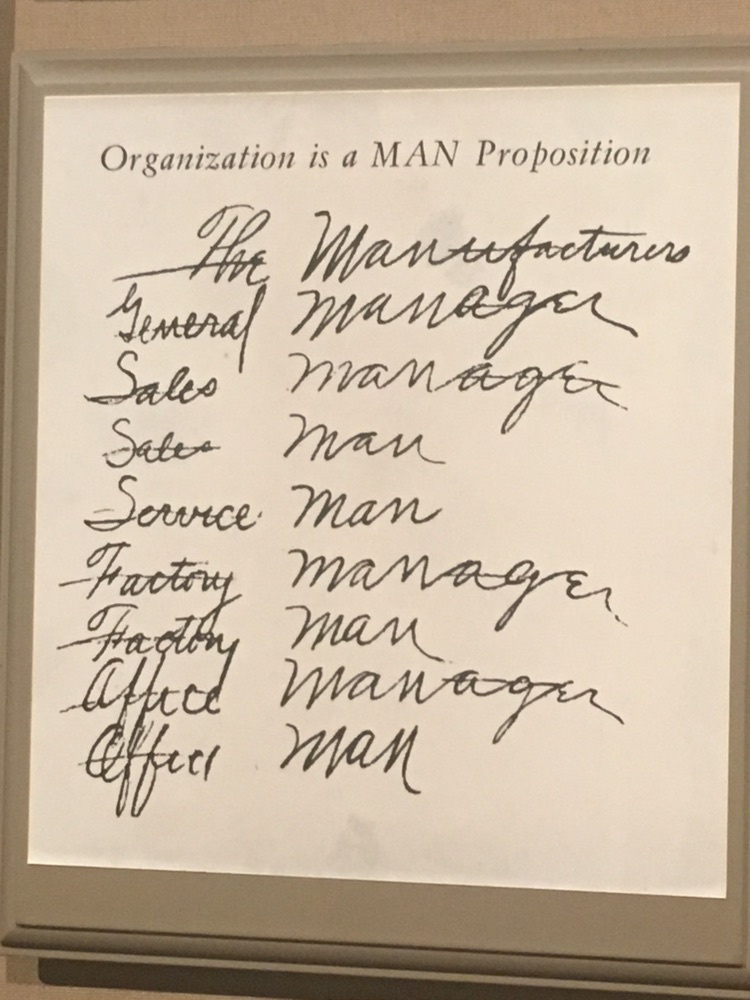 Organization is a MAN Proposition
The Manufacturers
General Manager
Sales Manager
Sales Man
Service Man
Factory Manager
Factory Man
Office Manager
Office Man